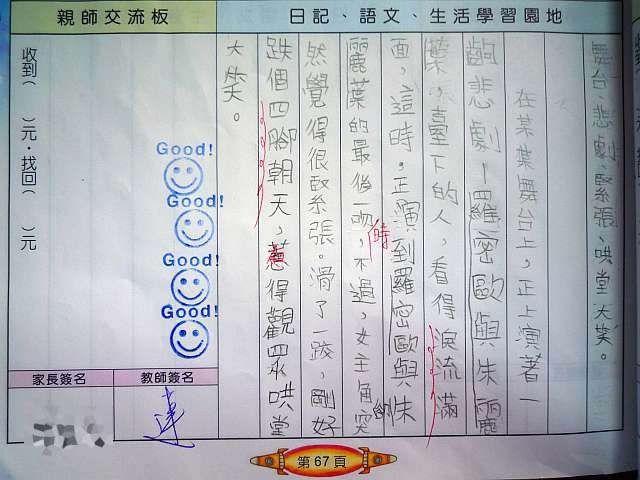 日記、語文、生活學習園地
舞台、悲劇、緊張、哄堂大笑。
在某葉舞台上,正上演著一
齣悲劇—羅密歐與朱麗
葉,臺下的人,看得淚流滿
面,這時,正演到羅密歐與朱
麗葉的最後一吻時,不過,女主角突
然覺得很緊張。滑了一跤,剛好
跌個四腳朝天,惹得觀眾哄堂
大笑。
親師交流板
收到( )元,找回( )元
Good!
Good!
Good!
Good!
教師簽名
家長簽名
達
第67頁